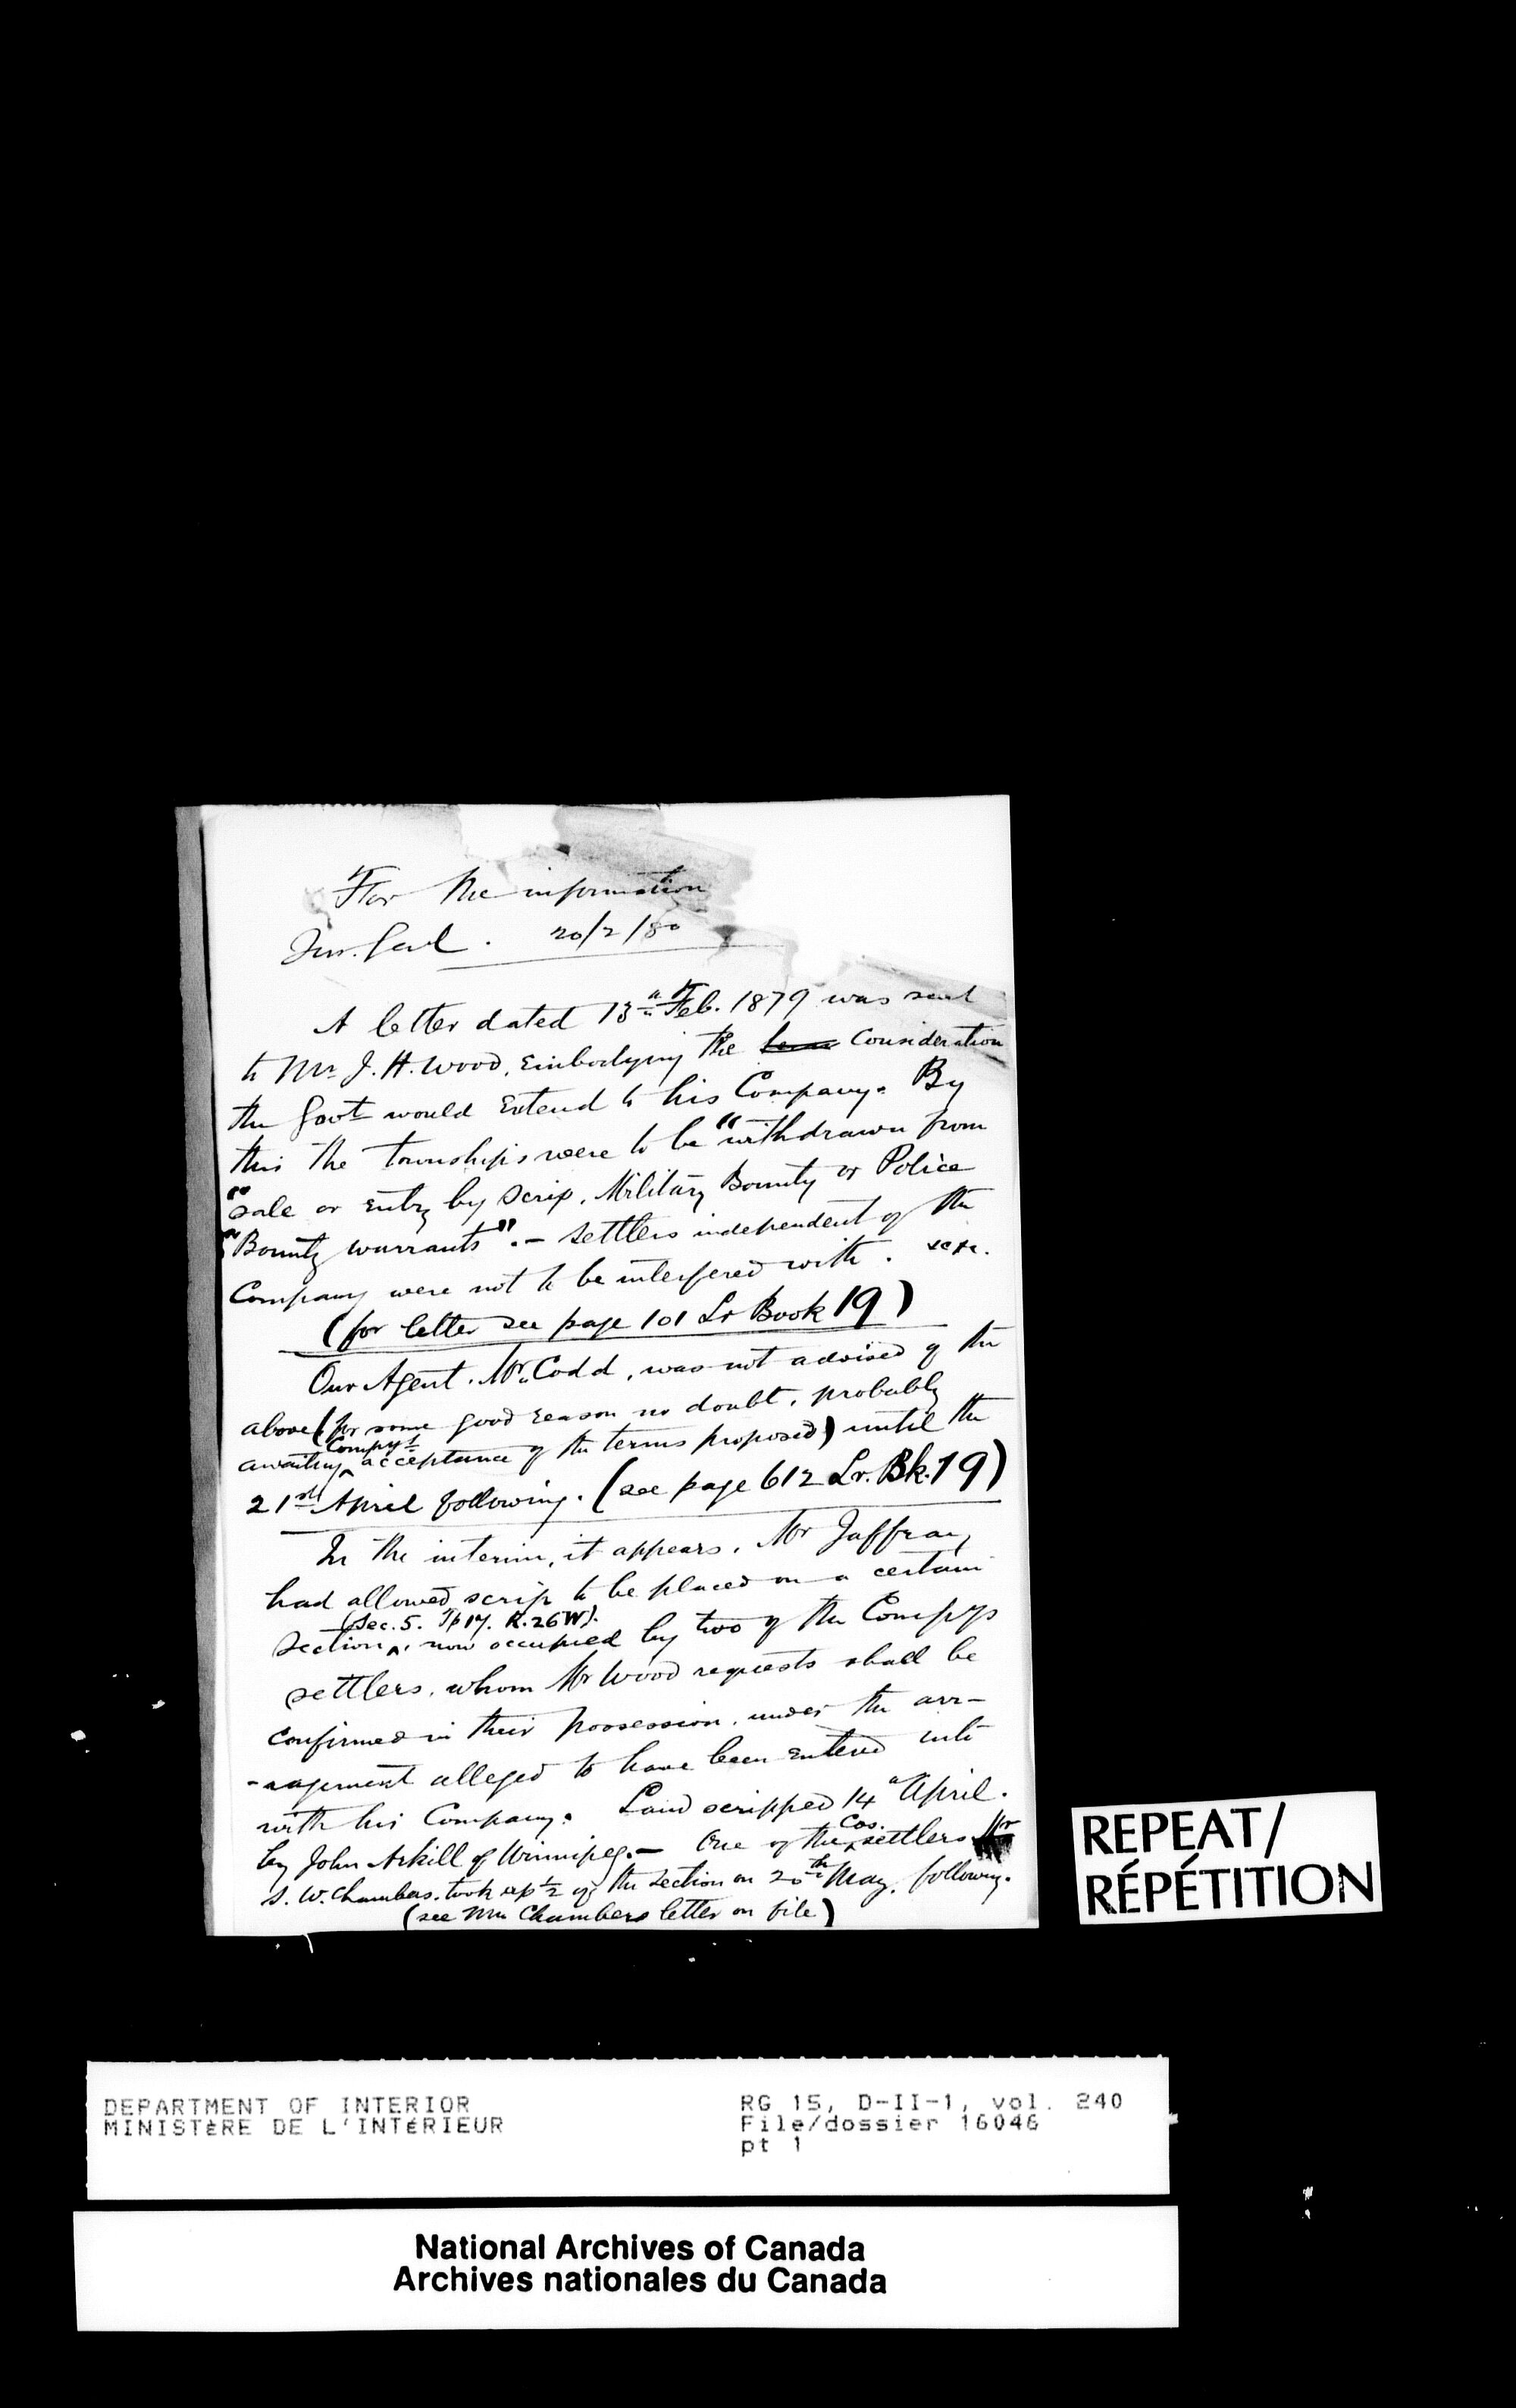 For the information
Sur. Genl. 20/2/80
A letter dated 13th Feb. 1879 was sent
to Mr J. H. Wood, embodying the consideration
the Govt would extend to his Company. By
this the townships were to be "withdrawn from
"sale or entry by scrip, Military Bounty or Police
"Bounty warrants". – Settlers independent of the
Company were not to be interfered with. &c &c.
(for letter see page 101 Lr Book 19)
Our Agent, Mr. Codd, was not advised of the
above (for some good reason no doubt, probably
awaiting Compy's acceptance of the terms proposed) until the
21st April following. (see page 612 Lr. Bk. 19)
In the interim, it appears, Mr Jaffray
had allowed scrip to be placed on a certain
section (Sec. 5. Tp 17. R. 26 W). now occupied by two of the Compys
settlers, whom Mr Wood requests shall be
confirmed in their possession, under the arr-
-angement alleged to have been entered into
with his Company. Land scripped 14th April.
by John Arkill of Winnipeg. – One of the Cos. settlers Mr
S. W. Chambers, took up ½ of the section on 20th May, following.
(see Mr Chambers letter on file)
REPEAT/
RÉPÉTITION
DEPARTMENT OF INTERIOR
MINISTÈRE DE L'INTÉRIEUR
RG 15, D-II-1, vol. 240
File/dossier 16046
pt 1
National Archives of Canada
Archives nationales du Canada